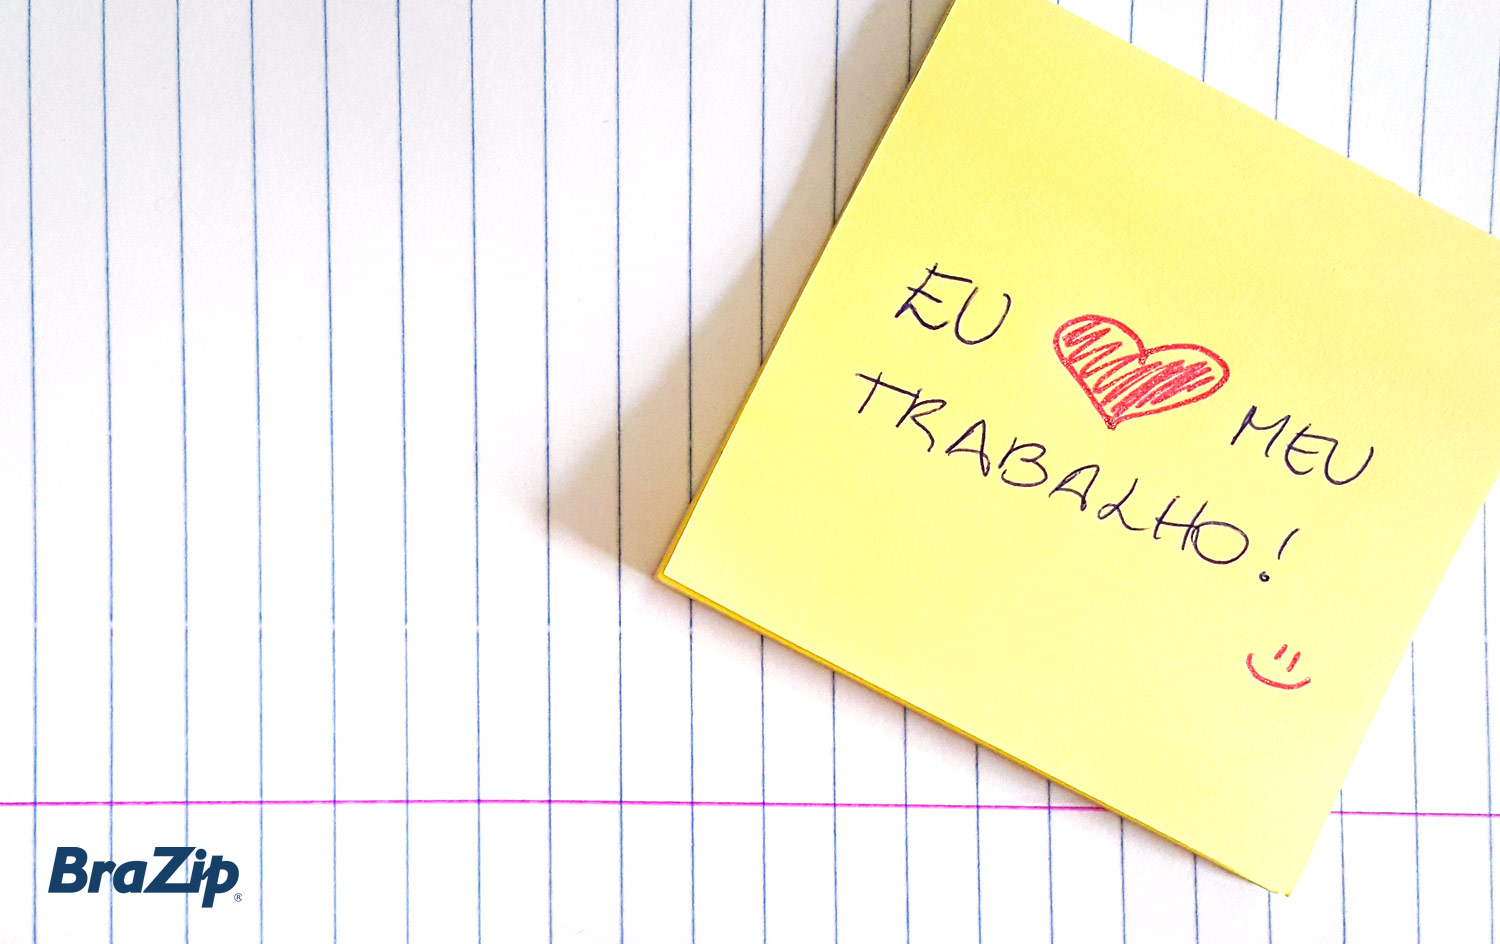 EU ❤ MEU
TRABALHO!
BraZip®